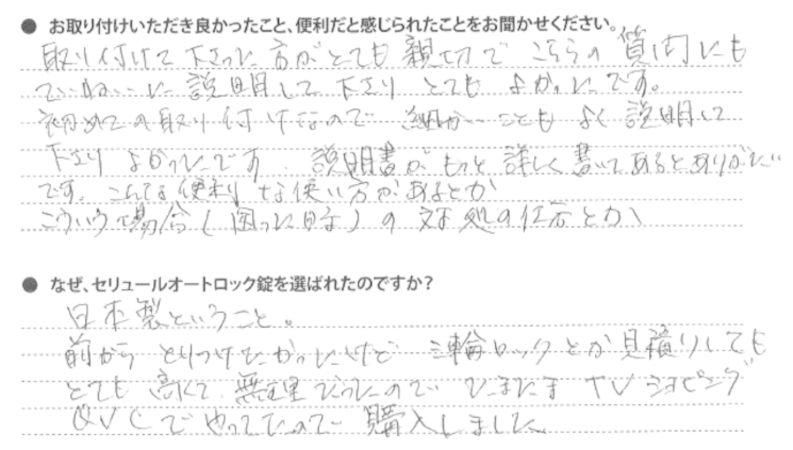 ● お取り付けいただき良かったこと、便利だと感じられたことをお聞かせください。
取り付けて下さった方がとても親切でこちらの質問にも
ていねいに説明して下さりとてもよかったです。
初めての取り付けなので細かいこともよく説明して
下さりよかったです。説明書がもっと詳しく書いてあるとありがたい
です。こんな便利な使い方があるとか
こういう場合(困った時)の対処の仕方とか
● なぜ、セリュールオートロック錠を選ばれたのですか?
日本製ということ。
前からとりつけたかったけど三輪ロックとか見積りしても
とても高くて無理だったのでたまたまTVショピング
QVCでやってたので購入しました